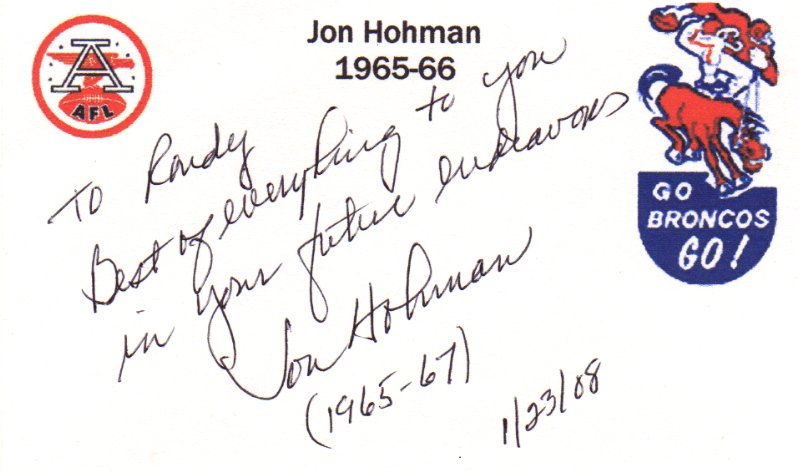 Jon Hohman
1965-66
A
AFL
To Randy
Best of everything to you
in your future endeavors
Jon Hohman
(1965-67)
1/23/08
GO
BRONCOS
GO!